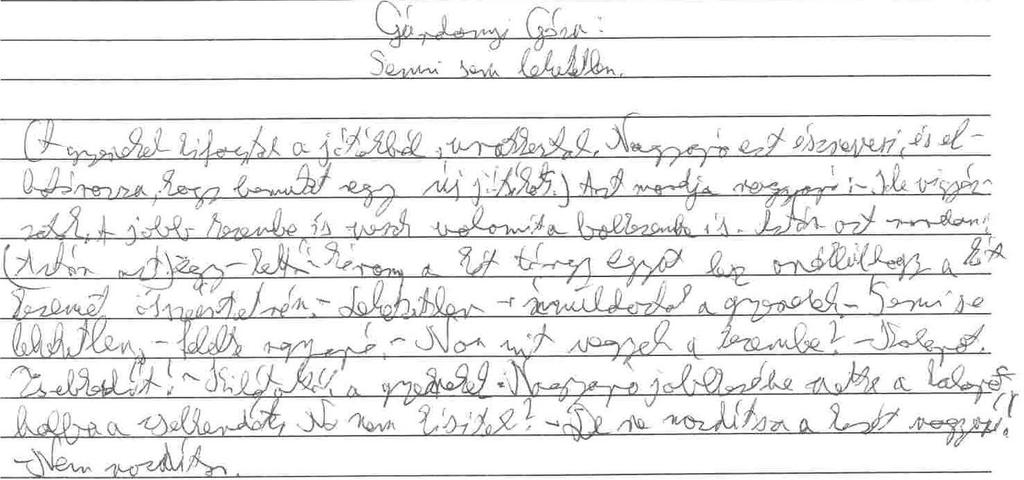 Gárdonyi Géza:
Semmi sem lehetetlen.
(A gyerekek kifogytak a játékból, unatkoztak. Nagyapó ezt észreveszi, és el-
határozza, hogy bemutat egy új játékot.) Azt mondja nagyapó: - Ide vigyáz-
zatok. A jobb kezembe is veszek valamit a balkezembe is. Aztán azt mondom:
(Aztán azt) Egy - kettő - három a két tárgy egyet lesz anélkül hogy a két
kezemet összetenném. - Lehetetlen - ámuldoztak a gyerekek. - Semmi se
lehetetlen, - felelte nagyapó. - Na mit vegyek a kezembe? - Kalapot.
Zsebkendőt! - a gyerekek. Nagyapó jobbkezébe vette a kalapot
balba a zsebkendőt. Na nem? - De ne mozdítsa a kezét nagyapó!
- Nem mozdítom.